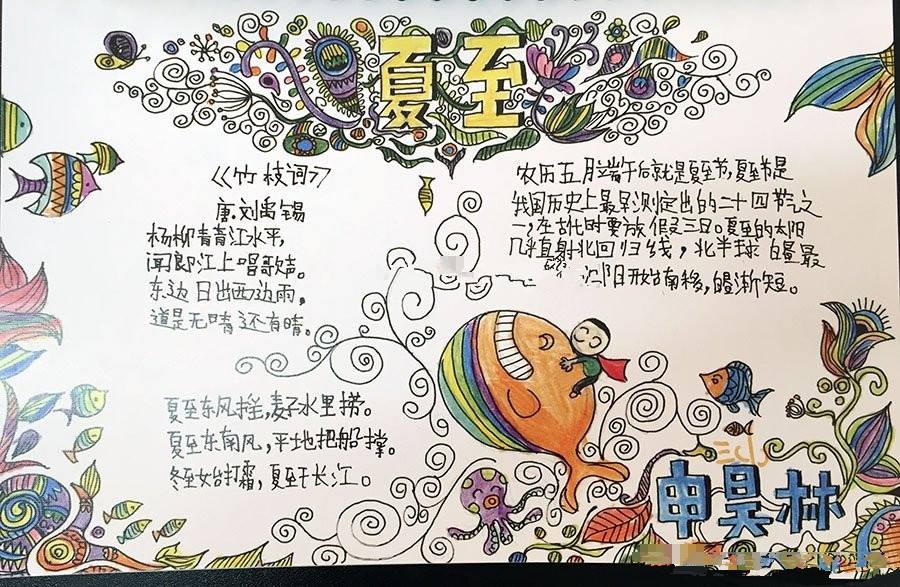 夏至
《竹枝词》
唐.刘禹锡
杨柳青青江水平,
闻郎江上唱歌声。
东边日出西边雨,
道是无晴还有晴。
农历五月端午后就是夏至节,夏至节是
我国历史上最早测定出的二十四节气之
一,在古代时要放假三日。夏至的太阳
几乎直射北回归线,北半球白昼最
阳开始南移,白昼渐短。
夏至东风摇,麦子水里捞。
夏至东南风,平地把船撑。
冬至始打霜,夏至干长江。
申昊林